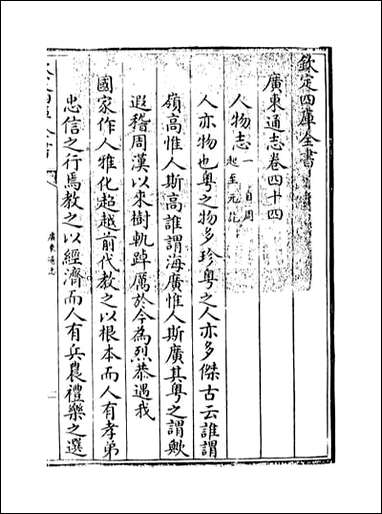 欽定四庫全書
廣東通志卷四十四
人物志一 自周
起至元
人亦物也粤之物多珍粤之人亦多傑古云誰謂
嶺高惟人斯高誰謂海廣惟人斯廣其粤之謂歟
遐稽周漢以來樹軌踔厲於今為烈恭遇我
國家作人雅化超越前代教之以根本而人有孝弟
忠信之行焉教之以經濟而人有兵農禮樂之選
廣東通志
一